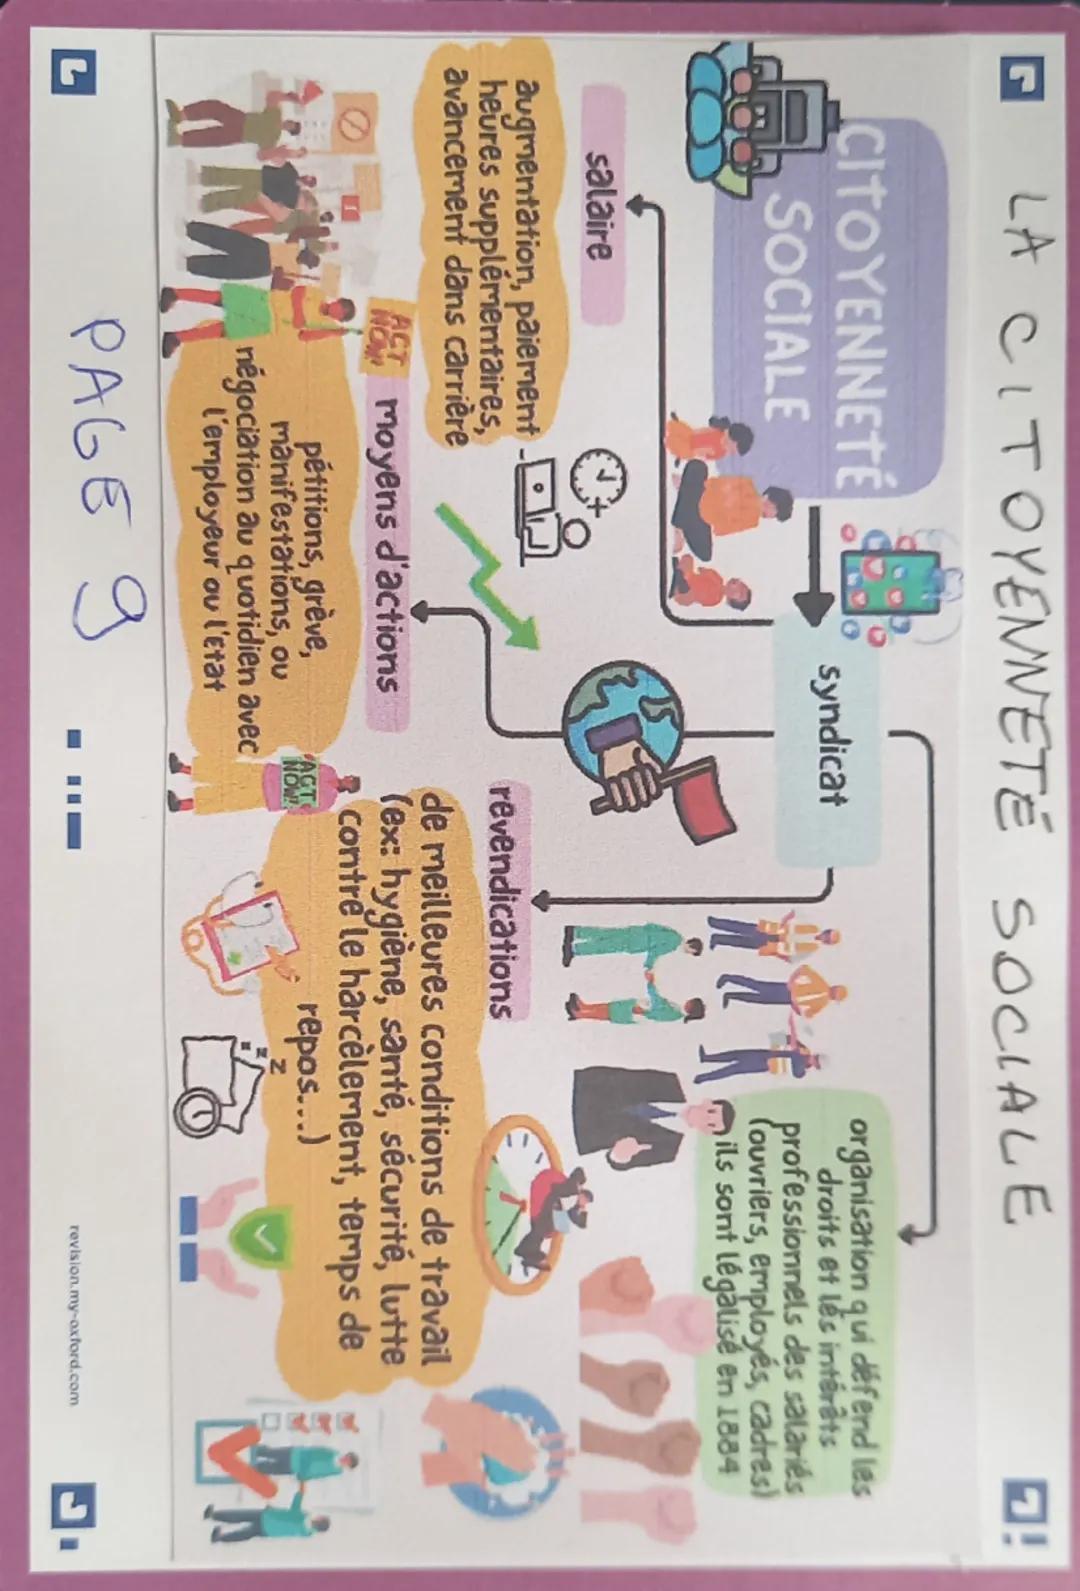 LA CITOYENNETÉ SOCIALE
CITOYENNETÉ
SOCIALE
syndicat
organisation qui défend les
droits et les intérêts
professionnels des salariés
(ouvriers, employés, cadres)
ils sont légalisé en 1884
salaire
augmentation, paiement
heures supplémentaires,
avancement dans carrière
moyens d'actions
pétitions, grève,
manifestations, ou
négociation au quotidien avec
l'employeur ou l'État
revendications
de meilleures conditions de travail
(ex: hygiène, santé, sécurité, lutte
contre le harcèlement, temps de
repos...)
ACT
NOW!
ACT
NOW!
z
z
z
PAGE 9
revision.my-oxford.com